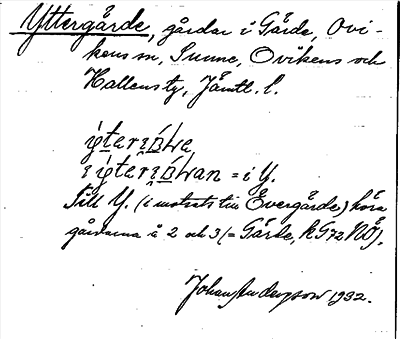 Yttergårde, gårdar i Gärde, Ovi-
kens sn, Sunne, Ovikens och
Hallens tg, Jämtl. l.
= i Y.
Till Y. (i motsats till Övergårde) höra
gårdarna å 2 och 3 (= Gärde, RG72NÖ).
Johan Anderson 1932.